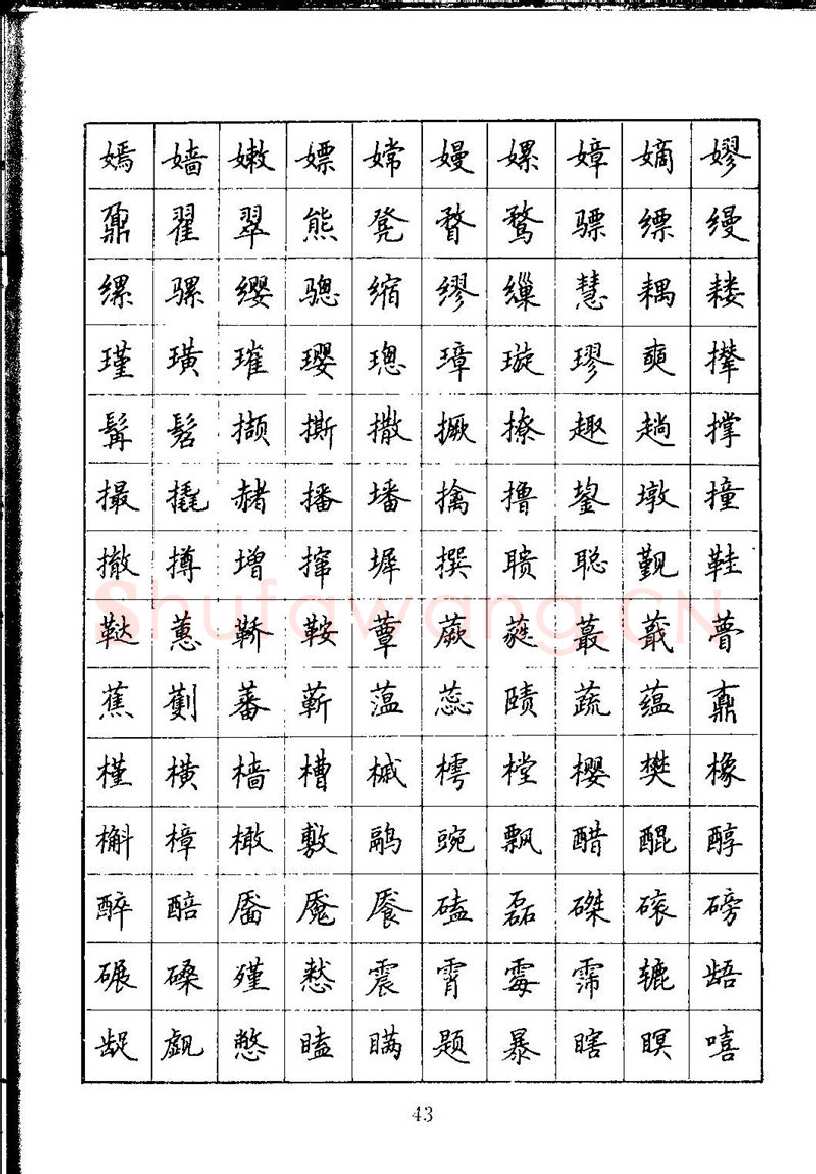 嫣嫱嫩嫖嫦嫚嫘嫜嫡嫪
鼐翟翠熊凳瞀鹜骠缥缦
缧骡缨骢缩缪缫慧耦耧
瑾璜璀璎璁璋璇璆奭撵
髯髫撷撕撒撅撩趣趟撑
撮撬赭播墦擒撸鋆墩撞
撤撙增撺墀撰聩聪觐鞋
鞑蕙鞒鞍蕈蕨蕤蕞蕺瞢
蕉劐蕃蕲蕰蕊赜蔬蕴鼒
槿横樯槽槭樗樘樱樊橡
槲樟橄敷鹝豌飘醋醌醇
醉醅靥魇餍磕磊磔磙磅
碾磉殣慭震霄霉霈辘龉
龊觑憋瞌瞒题暴瞎瞑嘻
Shufawang.CN
43